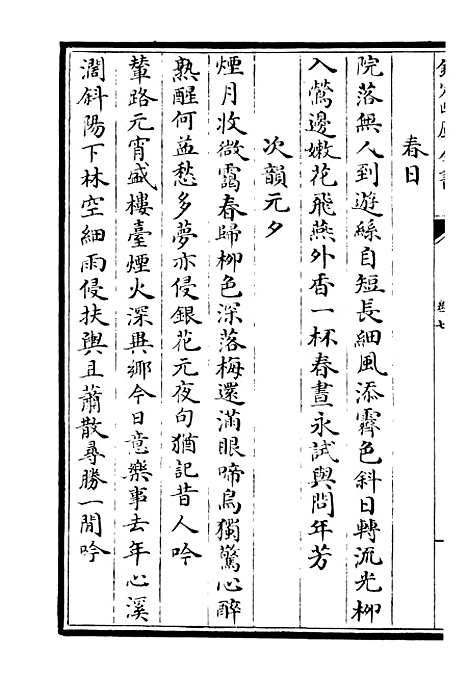 欽定四庫全書
卷七
春日
院落無人到遊絲自短長細風添霽色斜日轉流光柳
入鶯邊嫩花飛燕外香一杯春晝永試與問年芳
次韻元夕
煙月收微靄春歸柳色深落梅還滿眼啼鳥獨驚心醉
熟醒何益愁多夢亦侵銀花元夜句猶記昔人吟
輦路元宵盛樓臺煙火深異鄉今日意樂事去年心溪
濶斜陽下林空細雨侵扶輿且蕭散尋勝一閒吟